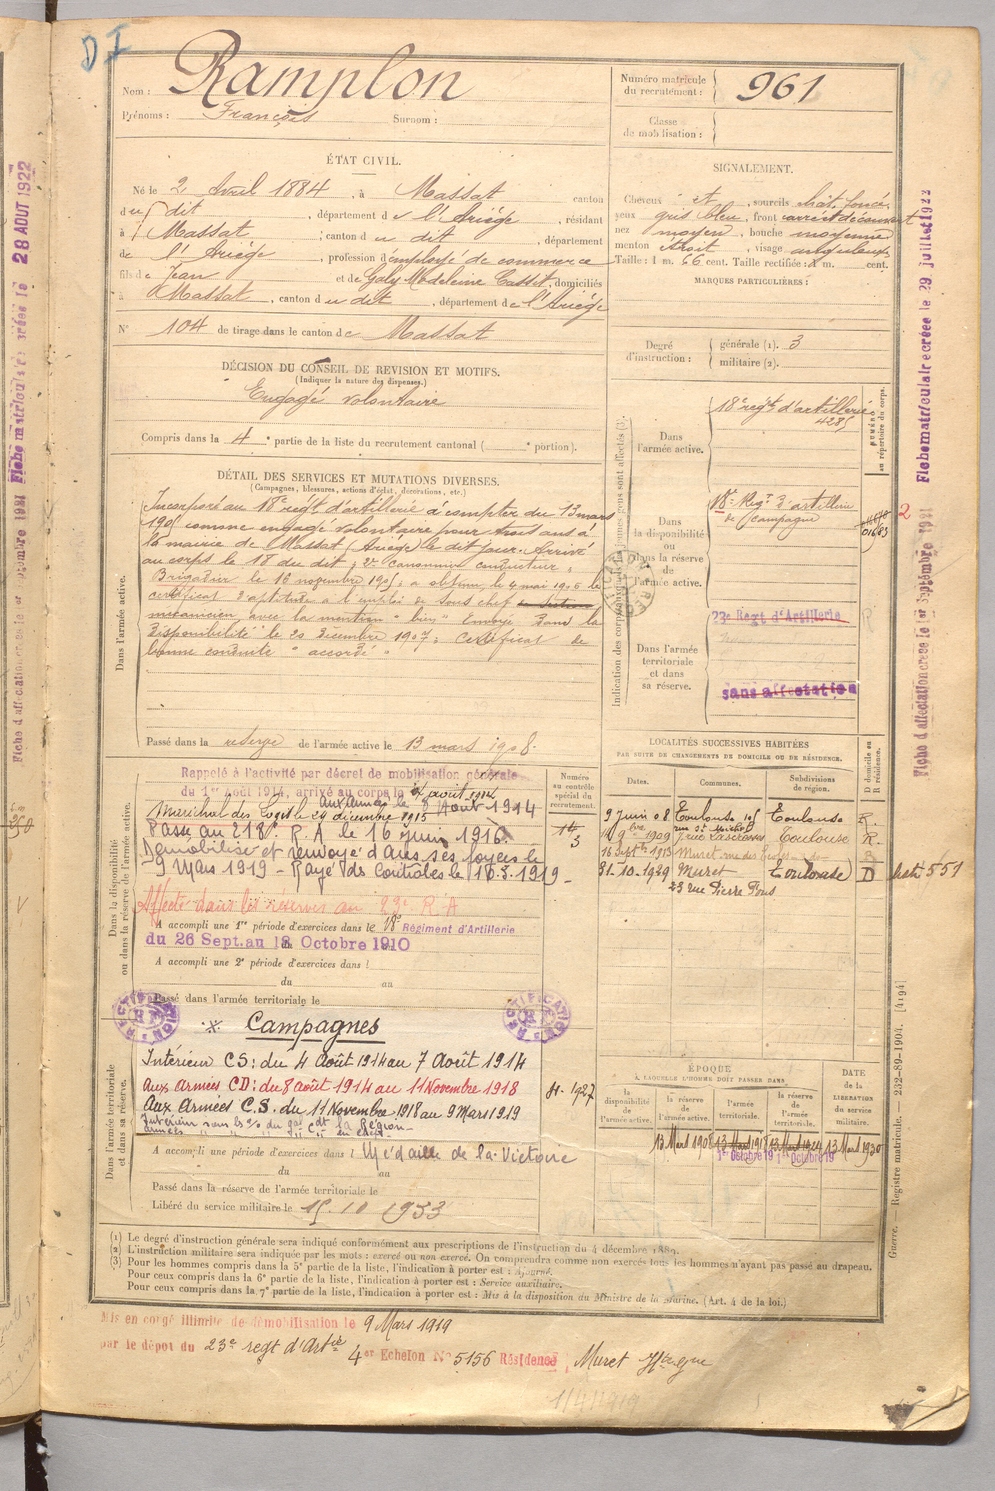 D I
Nom : Ramplon
Prénoms : François Surnom :
Numéro matricule
du recrutement : 961
Classe
de mobilisation :
ÉTAT CIVIL.
Né le 2 Avril 1884, à Massat canton
du dit, département de l'Ariège, résidant
à Massat ; canton du dit, département
de l'Ariège, profession d'employé de commerce
fils de Jean et de Galy Madeleine Casset, domiciliés
à Massat, canton du dit, département de l'Ariège
N° 104 de tirage dans le canton de Massat
SIGNALEMENT.
Cheveux et, sourcils chât. foncé,
yeux gris bleu, front découvert
nez moyen, bouche moyenne
menton étroit, visage anguleux
Taille : 1 m. 66 cent. Taille rectifiée : 1 m. cent.
MARQUES PARTICULIÈRES :
Degré
d'instruction :
générale (1). 3
militaire (2).
DÉCISION DU CONSEIL DE REVISION ET MOTIFS.
(Indiquer la nature des dispenses.)
Engagé volontaire
Compris dans la 4e partie de la liste du recrutement cantonal ( e portion).
DÉTAIL DES SERVICES ET MUTATIONS DIVERSES.
(Campagnes, blessures, actions d'éclat, décorations, etc.)
Dans l'armée active.
Incorporé au 18e régt d'artillerie à compter du 13 mars
1905 comme engagé volontaire pour trois ans à
la mairie de Massat (Ariège) le dit jour. Arrivé
au corps le 18 du dit ; 2e Canonnier conducteur ;
Brigadier le 16 novembre 1905 ; a obtenu le 4 mai 1906 le
certificat d'aptitude à l'emploi de sous chef
mécanicien avec la mention "bien" Envoyé dans la
disponibilité le 20 Décembre 1907 ; Certificat de
bonne conduite "accordé"
Passé dans la réserve de l'armée active le 13 mars 1908.
Indication des corps auxquels les jeunes gens sont affectés (3).
NUMÉRO
au répertoire du corps.
Dans
l'armée active.
18e régt d'artillerie
4285
Dans
la disponibilité
ou
dans la réserve
de
l'armée active.
18e Régt d'artillerie
de campagne
23e Régt d'Artillerie
Dans l'armée
territoriale
et dans
sa réserve.
sans affectation
Dans la disponibilité
ou dans la réserve de l'armée active.
Rappelé à l'activité par décret de mobilisation générale
du 1er Août 1914, arrivé au corps le 4 août 1914
aux armées le 8 Août 1914
Maréchal des Logis le 29 décembre 1915
Passé au 218e R.A le 16 juin 1916.
Démobilisé et renvoyé dans ses foyers le
9 Mars 1919 - Rayé des contrôles le 10.3.1919 -
Affecté dans les réserves au 23e R A
A accompli une 1re période d'exercices dans le 18e Régiment d'Artillerie
du 26 Sept. au 12 Octobre 1910
A accompli une 2e période d'exercices dans l
du au
Passé dans l'armée territoriale le
Numéro
au contrôle
spécial du
recrutement.
LOCALITÉS SUCCESSIVES HABITÉES
PAR SUITE DE CHANGEMENTS DE DOMICILE OU DE RÉSIDENCE.
Dates. Communes. Subdivisions
de région.
D domicile ou
R résidence.
9 Juin 08 Toulouse R.
rue St Michel
1909 Toulouse R.
16 Septbre 1913 Muret
31-10-1929 Muret Toulouse D
23 rue Pierre Fons
Dans l'armée territoriale
et dans sa réserve.
RECTIFICATION
RECTIFICATION
Campagnes
Intérieur C S : du 4 Août 1914 au 7 Août 1914
Aux Armées CD : du 8 août 1914 au 11 Novembre 1918
Aux Armées C.S. du 11 Novembre 1918 au 9 Mars 1919
A accompli une période d'exercices dans l Médaille de la Victoire
du au
Passé dans la réserve de l'armée territoriale le
Libéré du service militaire le 15.10 1933
ÉPOQUE
À LAQUELLE L'HOMME DOIT PASSER DANS
DATE
de la
LIBÉRATION
du service
militaire.
la
disponibilité
de
l'armée active.
la réserve
de
l'armée active.
l'armée
territoriale.
la réserve
de
l'armée
territoriale.
13 Mars 1908 13 Mars 1918 13 Mars 1924 13 Mars 1930
1er Octobre 19 1er Octobre 19
(1) Le degré d'instruction générale sera indiqué conformément aux prescriptions de l'instruction du 4 décembre 1889.
(2) L'instruction militaire sera indiquée par les mots : exercé ou non exercé. On comprendra comme non exercés tous les hommes n'ayant pas passé au drapeau.
(3) Pour les hommes compris dans la 5e partie de la liste, l'indication à porter est : Ajourné.
Pour ceux compris dans la 6e partie de la liste, l'indication à porter est : Service auxiliaire.
Pour ceux compris dans la 7e partie de la liste, l'indication à porter est : Mis à la disposition du Ministre de la Marine. (Art. 4 de la loi.)
Mis en congé illimité de démobilisation le 9 Mars 1919
par le dépot du 23e regt d'Artie 4er Echelon N° 5156 Résidence Muret Hte Gne
1/4/1919
Guerre. — Registre matricule. — 232-89-1904. [4194]
Fiche matriculaire créée le 29 juillet 1922
Fiche d'affectation créée le 1er Septembre 1921
Fiche matriculaire créée le 28 AOUT 1922